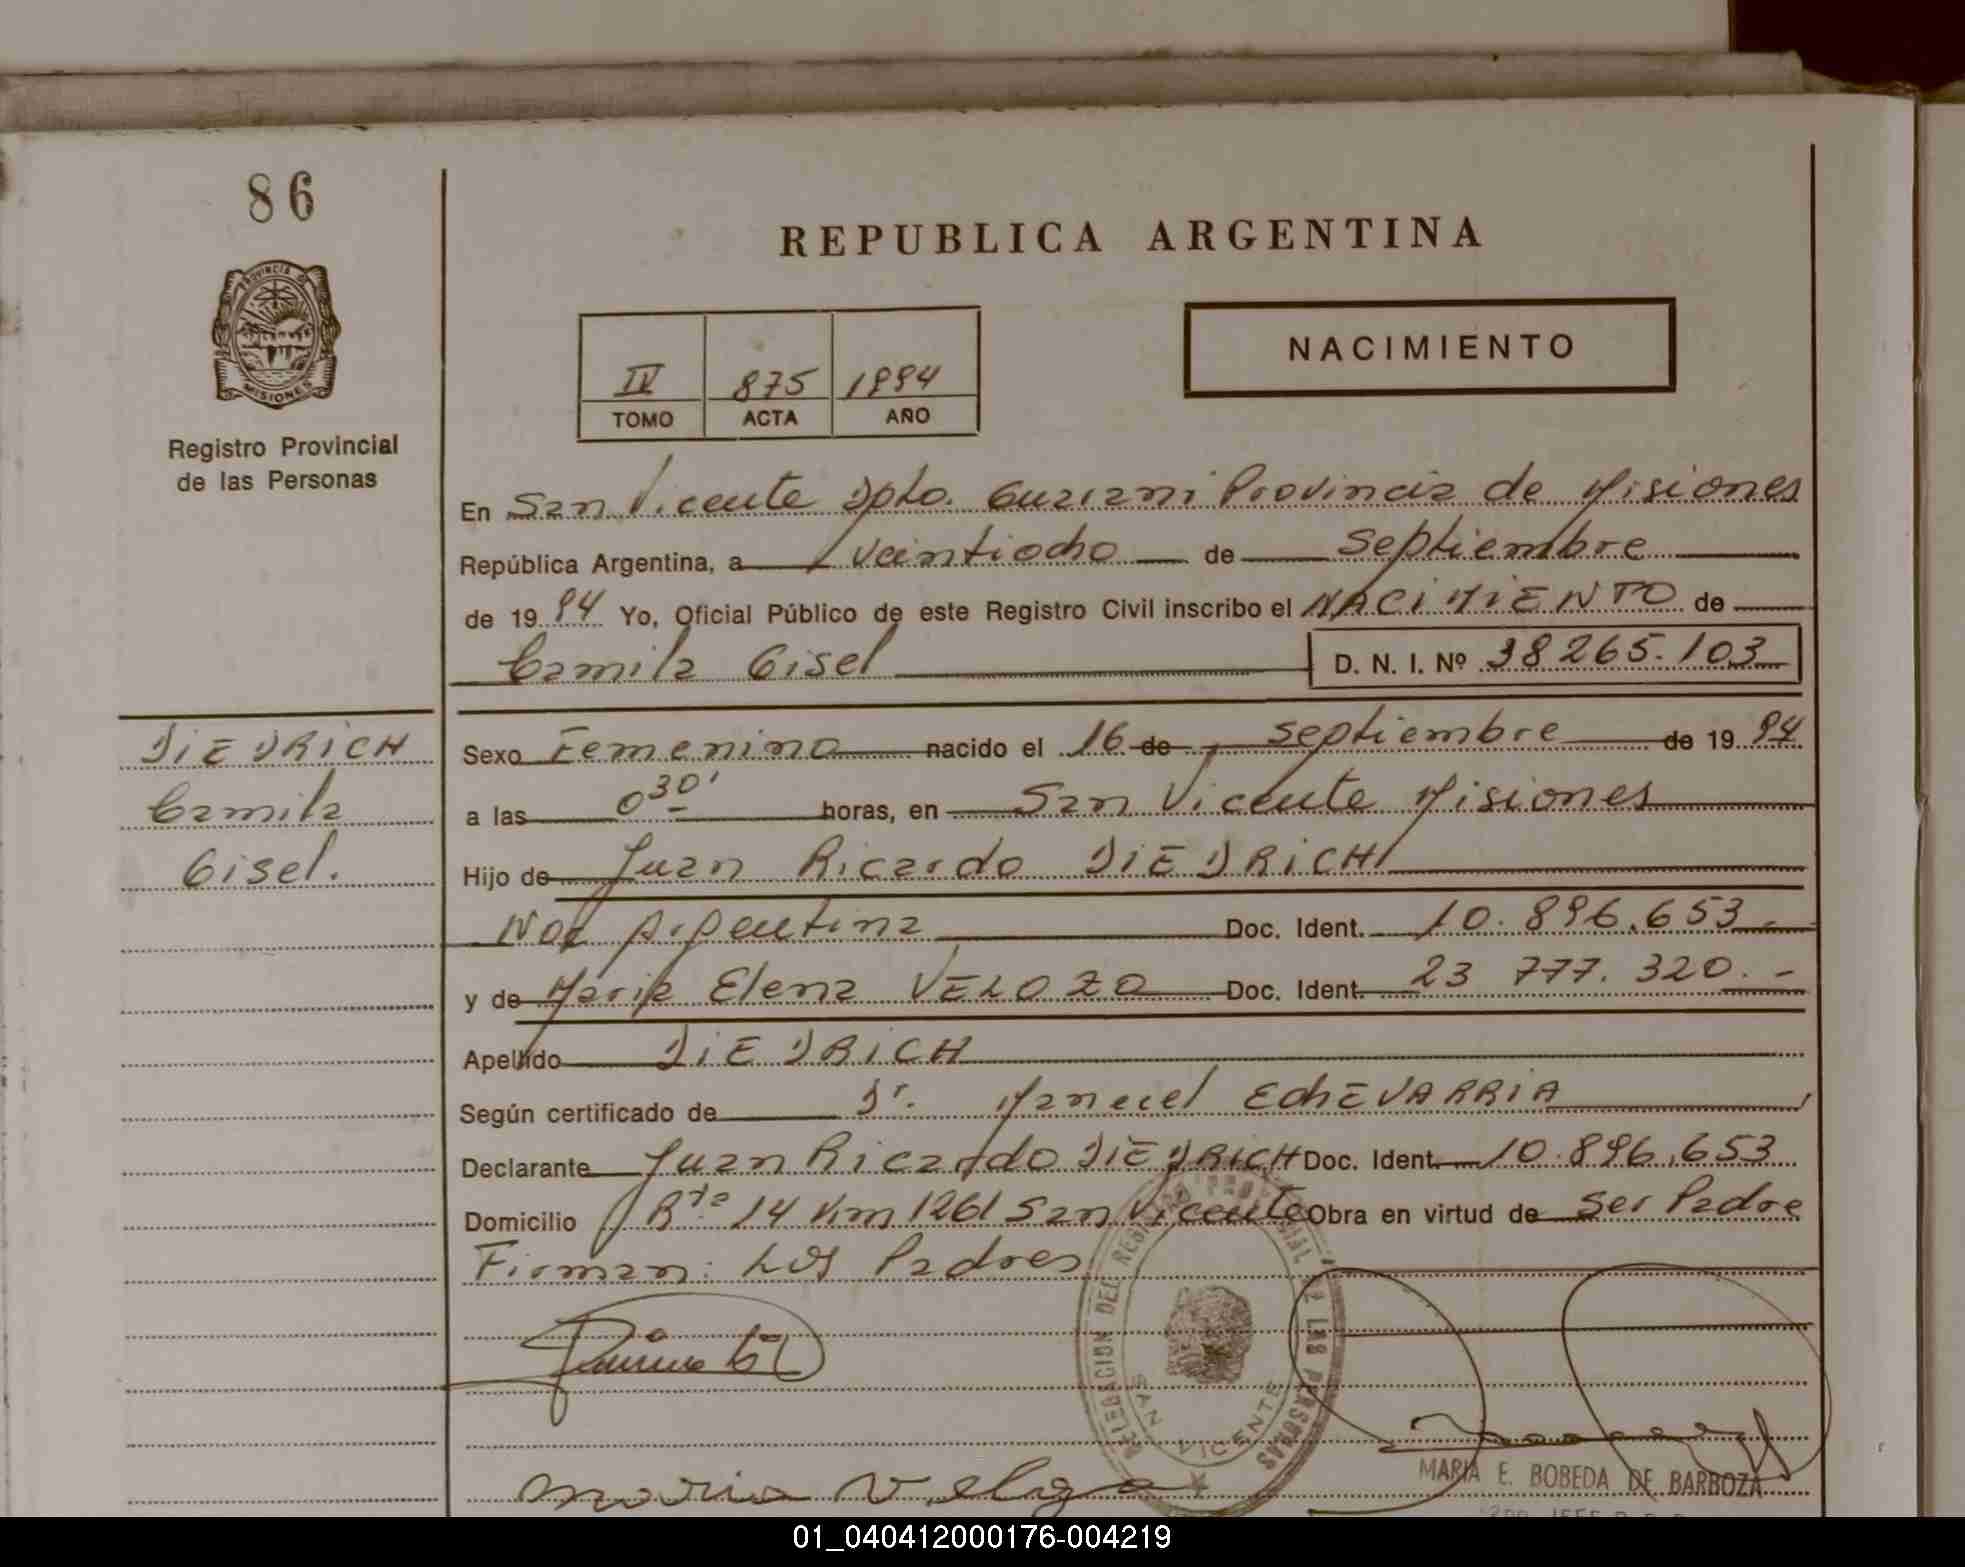 86
REPUBLICA ARGENTINA
PROVINCIA DE
MISIONES
Registro Provincial
de las Personas
IV 875 1994
TOMO ACTA AÑO
NACIMIENTO
En San Vicente Dpto. Guarani Provincia de Misiones
República Argentina, a veintiocho de septiembre
de 1994 Yo, Oficial Público de este Registro Civil inscribo el NACIMIENTO de
Camila Gisel D. N. I. Nº 38265.103
DIEDRICH
Camila
Gisel.
Sexo Femenino nacido el 16 de septiembre de 1994
a las 0 30' horas, en San Vicente Misiones
Hijo de Juan Ricardo DIEDRICH
Nac Argentina Doc. Ident. 10.896.653.-
y de Maria Elena VELOZO Doc. Ident. 23 777.320.-
Apellido DIEDRICH
Según certificado de Dr. Manuel EchEVARRIA
Declarante Juan Ricardo DIEDRICH Doc. Ident. 10.896.653
Domicilio Rta 14 Km 1261 San Vicente Obra en virtud de ser Padre
Firman: Los Padres
DELEGACION DEL REGISTRO PROVINCIAL DE LAS PERSONAS
SAN VICENTE
MARIA E. BOBEDA DE BARBOZA
01_040412000176-004219